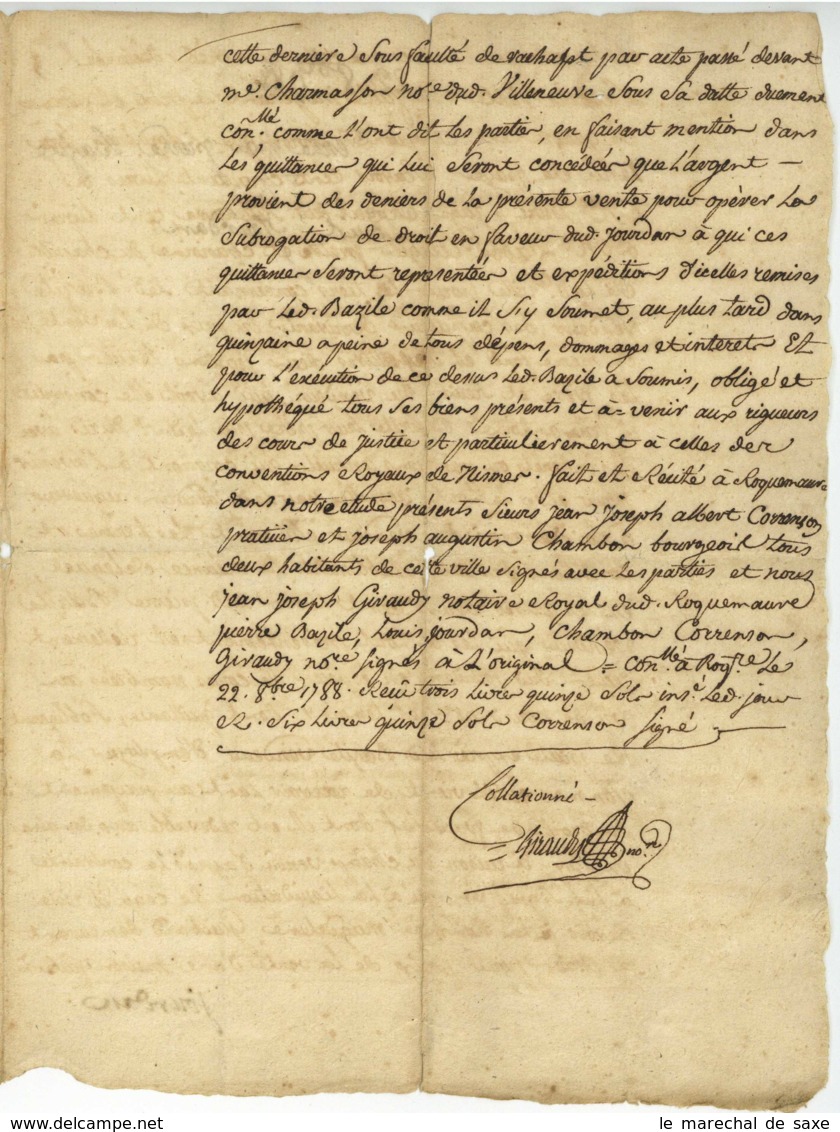 cette derniere sous faulté de rachapt par acte passé devant
me. Charmasson nore dud. Villeneuve sous sa datte duement
conllé. comme l'ont dit les parties, en faisant mention dans
les quittances qui lui seront concédées que l'argent —
provient des deniers de la présente vente pour opèrer la
subrogation de droit en faveur dud. jourdan à qui ces
quittances seront representées et expéditions d'icelles remises
par led. Bazile comme il s'y soumet, au plus tard dans
quinzaine a peine de tous dépens, dommages et interets Et
pour l'exécution de ce dessus led. Bazile a soumis, obligé et
hypothéqué tous ses biens présents et à-venir aux rigueurs
des cours de justice et particulierement à celles des
conventions Royaux de Nismes. fait et Récité à Roquemaure
dans notre etude présents sieurs jean joseph albert Correnson
praticien et joseph augustin Chambon bourgeois tous
deux habitants de cette ville signés avec les parties et nous
jean joseph Giraudy notaire Royal dud. Roquemaure
pierre Bazile, Louis jourdan, Chambon Correnson,
Giraudy nore signés à l'original = conllé. à Roqre Le
22. 8bre 1788. Reçû trois livres quinze sols insé. Led. jour
R. six livres quinze sols Correnson signé —
Collationné —
= Giraudy nore
jourdan
le marechal de saxe